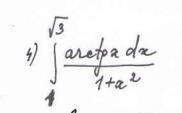 4) ∫₁^√3 arctgx dx / 1+x²